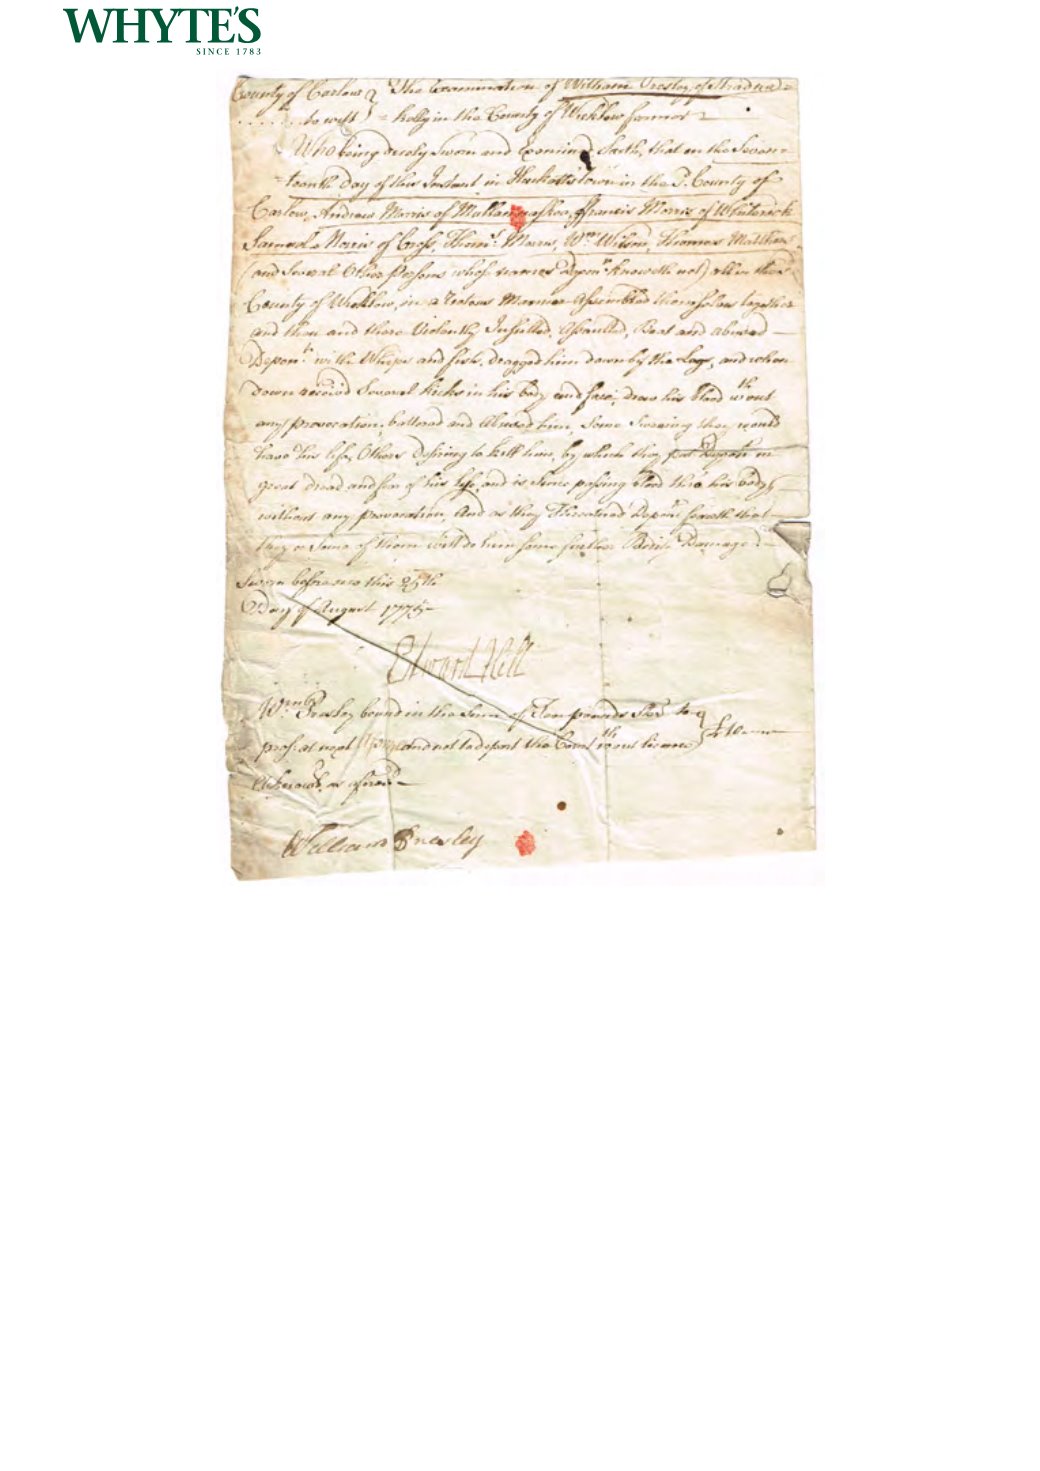 WHYTE'S
SINCE 1783
County of Carlow The Examination of William Presley of Stradna=
to wit = kelly in the County of Wicklow farmer
Who being duely Sworn and Examined Saith, that on the Seven=
=teenth Day of this Instant in Hacketts town in the sd. County of
Carlow, Andrew Morris of ffrancis Morris of Whiterock
Samuel Morris of Cross, Thoms. Morris, Wm. Wilson, Thomas
(and Several Other Persons whose names Depont. knoweth not) all in the
County of Wicklow, in a Riotous Manner Assembled themselves together
and then and there Violently Insulted, Assaulted, Beat and abused
Depont. with Whips and fists, dragged him down by the Legs, and when
down received Several kicks in his body and face, drew his blood wth.out
any provocation, battered and Abused him, Some Swearing they would
have his life, Others Desiring to kill him, by which they put Depont. in
great dread and fear of his life, and is Since passing blood thro' his body
without any provocation, And as they Threatened Depont. feareth that
they or Some of them will do him some further Bodily Damage
Sworn before me this 25th
Day of August 1775
Edward Hill
Wm. Presley bound in the Sum of Ten pounds Ster. to
pros. at next and not to depart the Court wth.out licence £10
Acknowd. as aforesd.
William Presley